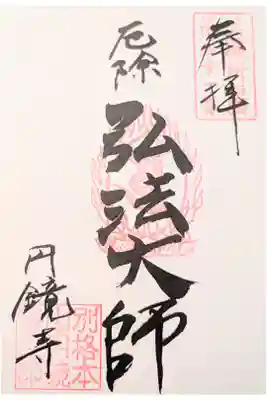 奉拝
厄除
弘法大師
円鏡寺
別格本